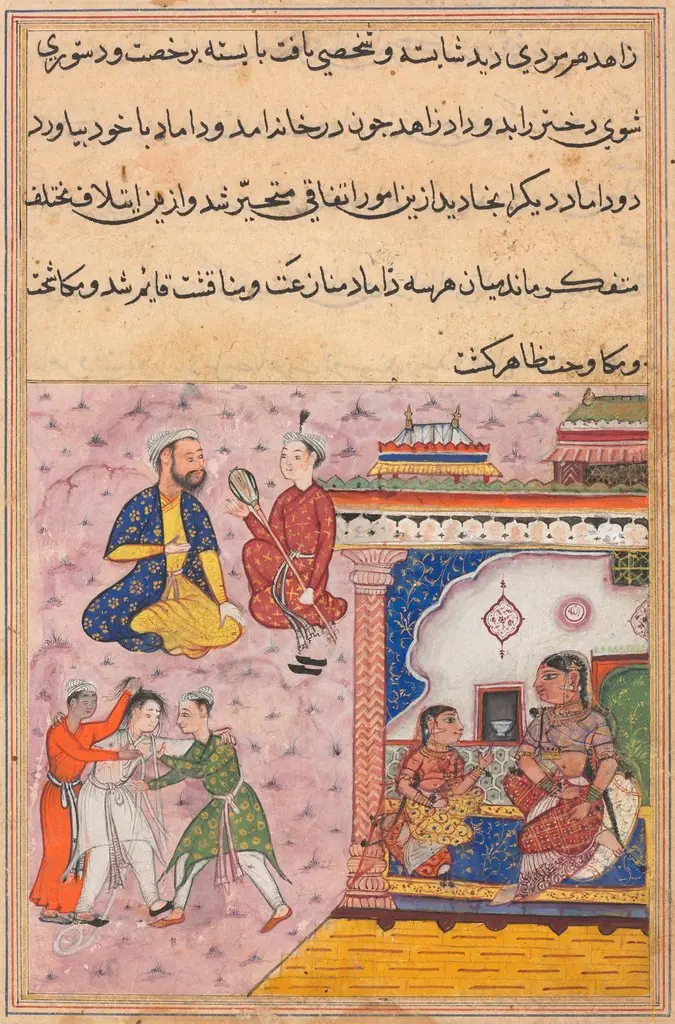 زاهد هر مردي ديد شايسته و شخصي يافت بايسته برخصت و دستوري
شوي دختر را بدو داد زاهد جون در خانه امد و داماد با خود بياورد
دو داماد ديكر انجا ديد ازين امور اتفاقي متحيّر شد و ازين ايتلاف مختلف
متفكر ماند ميان هر سه داماد منازعَت و مناقشت قايم شد و مكاشحت
و مكاوحت ظاهر كشت